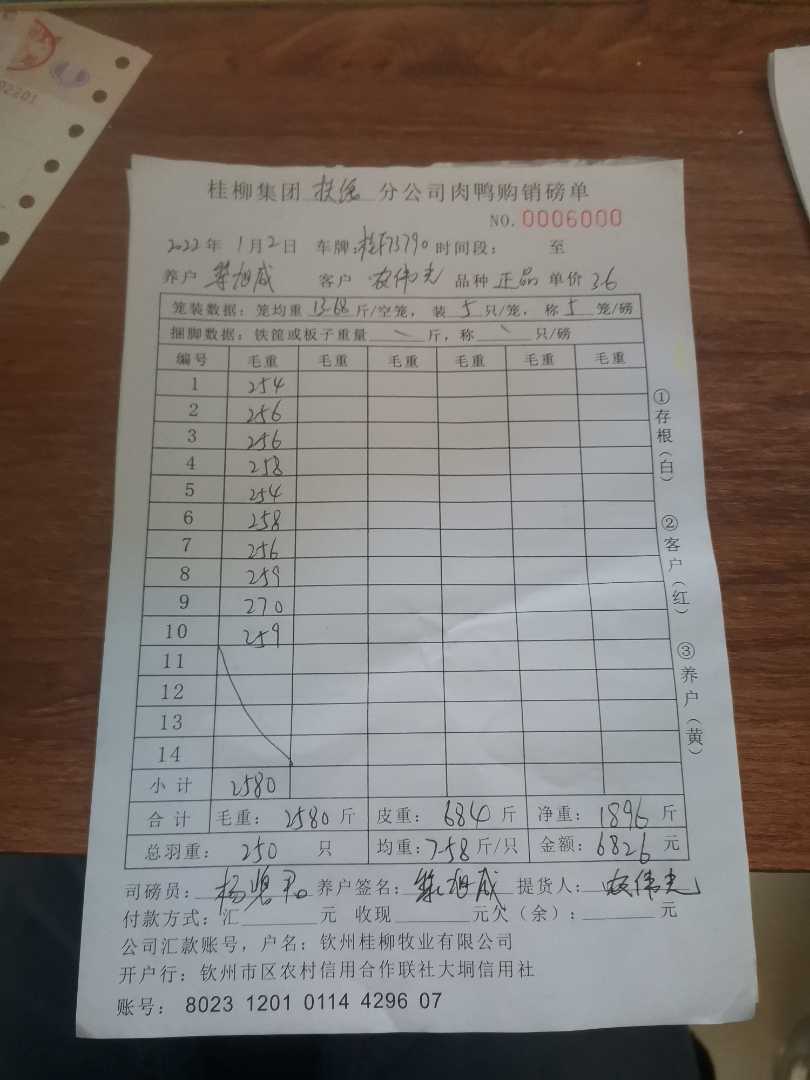 02201
桂柳集团 扶绥 分公司肉鸭购销磅单
NO. 0006000
2022年 1月2日 车牌:桂F73790 时间段: 至
养户 旭成 客户 农伟光 品种 正品 单价 3.6
笼装数据: 笼均重 13.68 斤/空笼, 装 5 只/笼, 称 5 笼/磅
捆脚数据: 铁筐或板子重量 \ 斤, 称 \ 只/磅
编号 毛重 毛重 毛重 毛重 毛重 毛重
1 254
2 256
3 256
4 258
5 254
6 258
7 256
8 259
9 270
10 259
11
12
13
14
小计 2580
合计 毛重: 2580 斤 皮重: 684 斤 净重: 1896 斤
总羽重: 250 只 均重: 7.58 斤/只 金额: 6826 元
司磅员: 杨 养户签名: 旭成 提货人: 农伟光
付款方式: 汇 元 收现 元欠(余): 元
公司汇款账号, 户名: 钦州桂柳牧业有限公司
开户行: 钦州市区农村信用合作联社大垌信用社
账号: 8023 1201 0114 4296 07
①存根(白) ②客户(红) ③养户(黄)